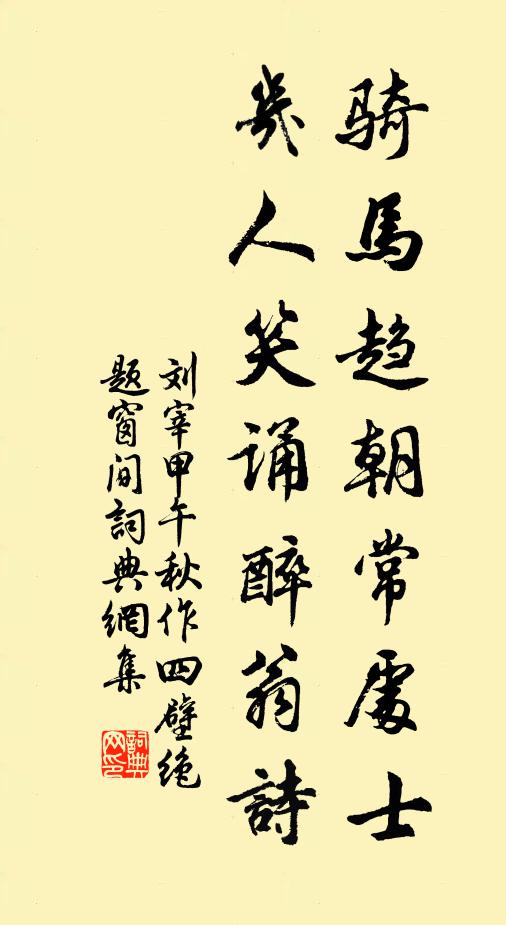 骑馬趋朝常處士
幾人笑誦醉翁詩
刘宰甲午秋作四壁绝
题窗间詞典網集
詞典网印